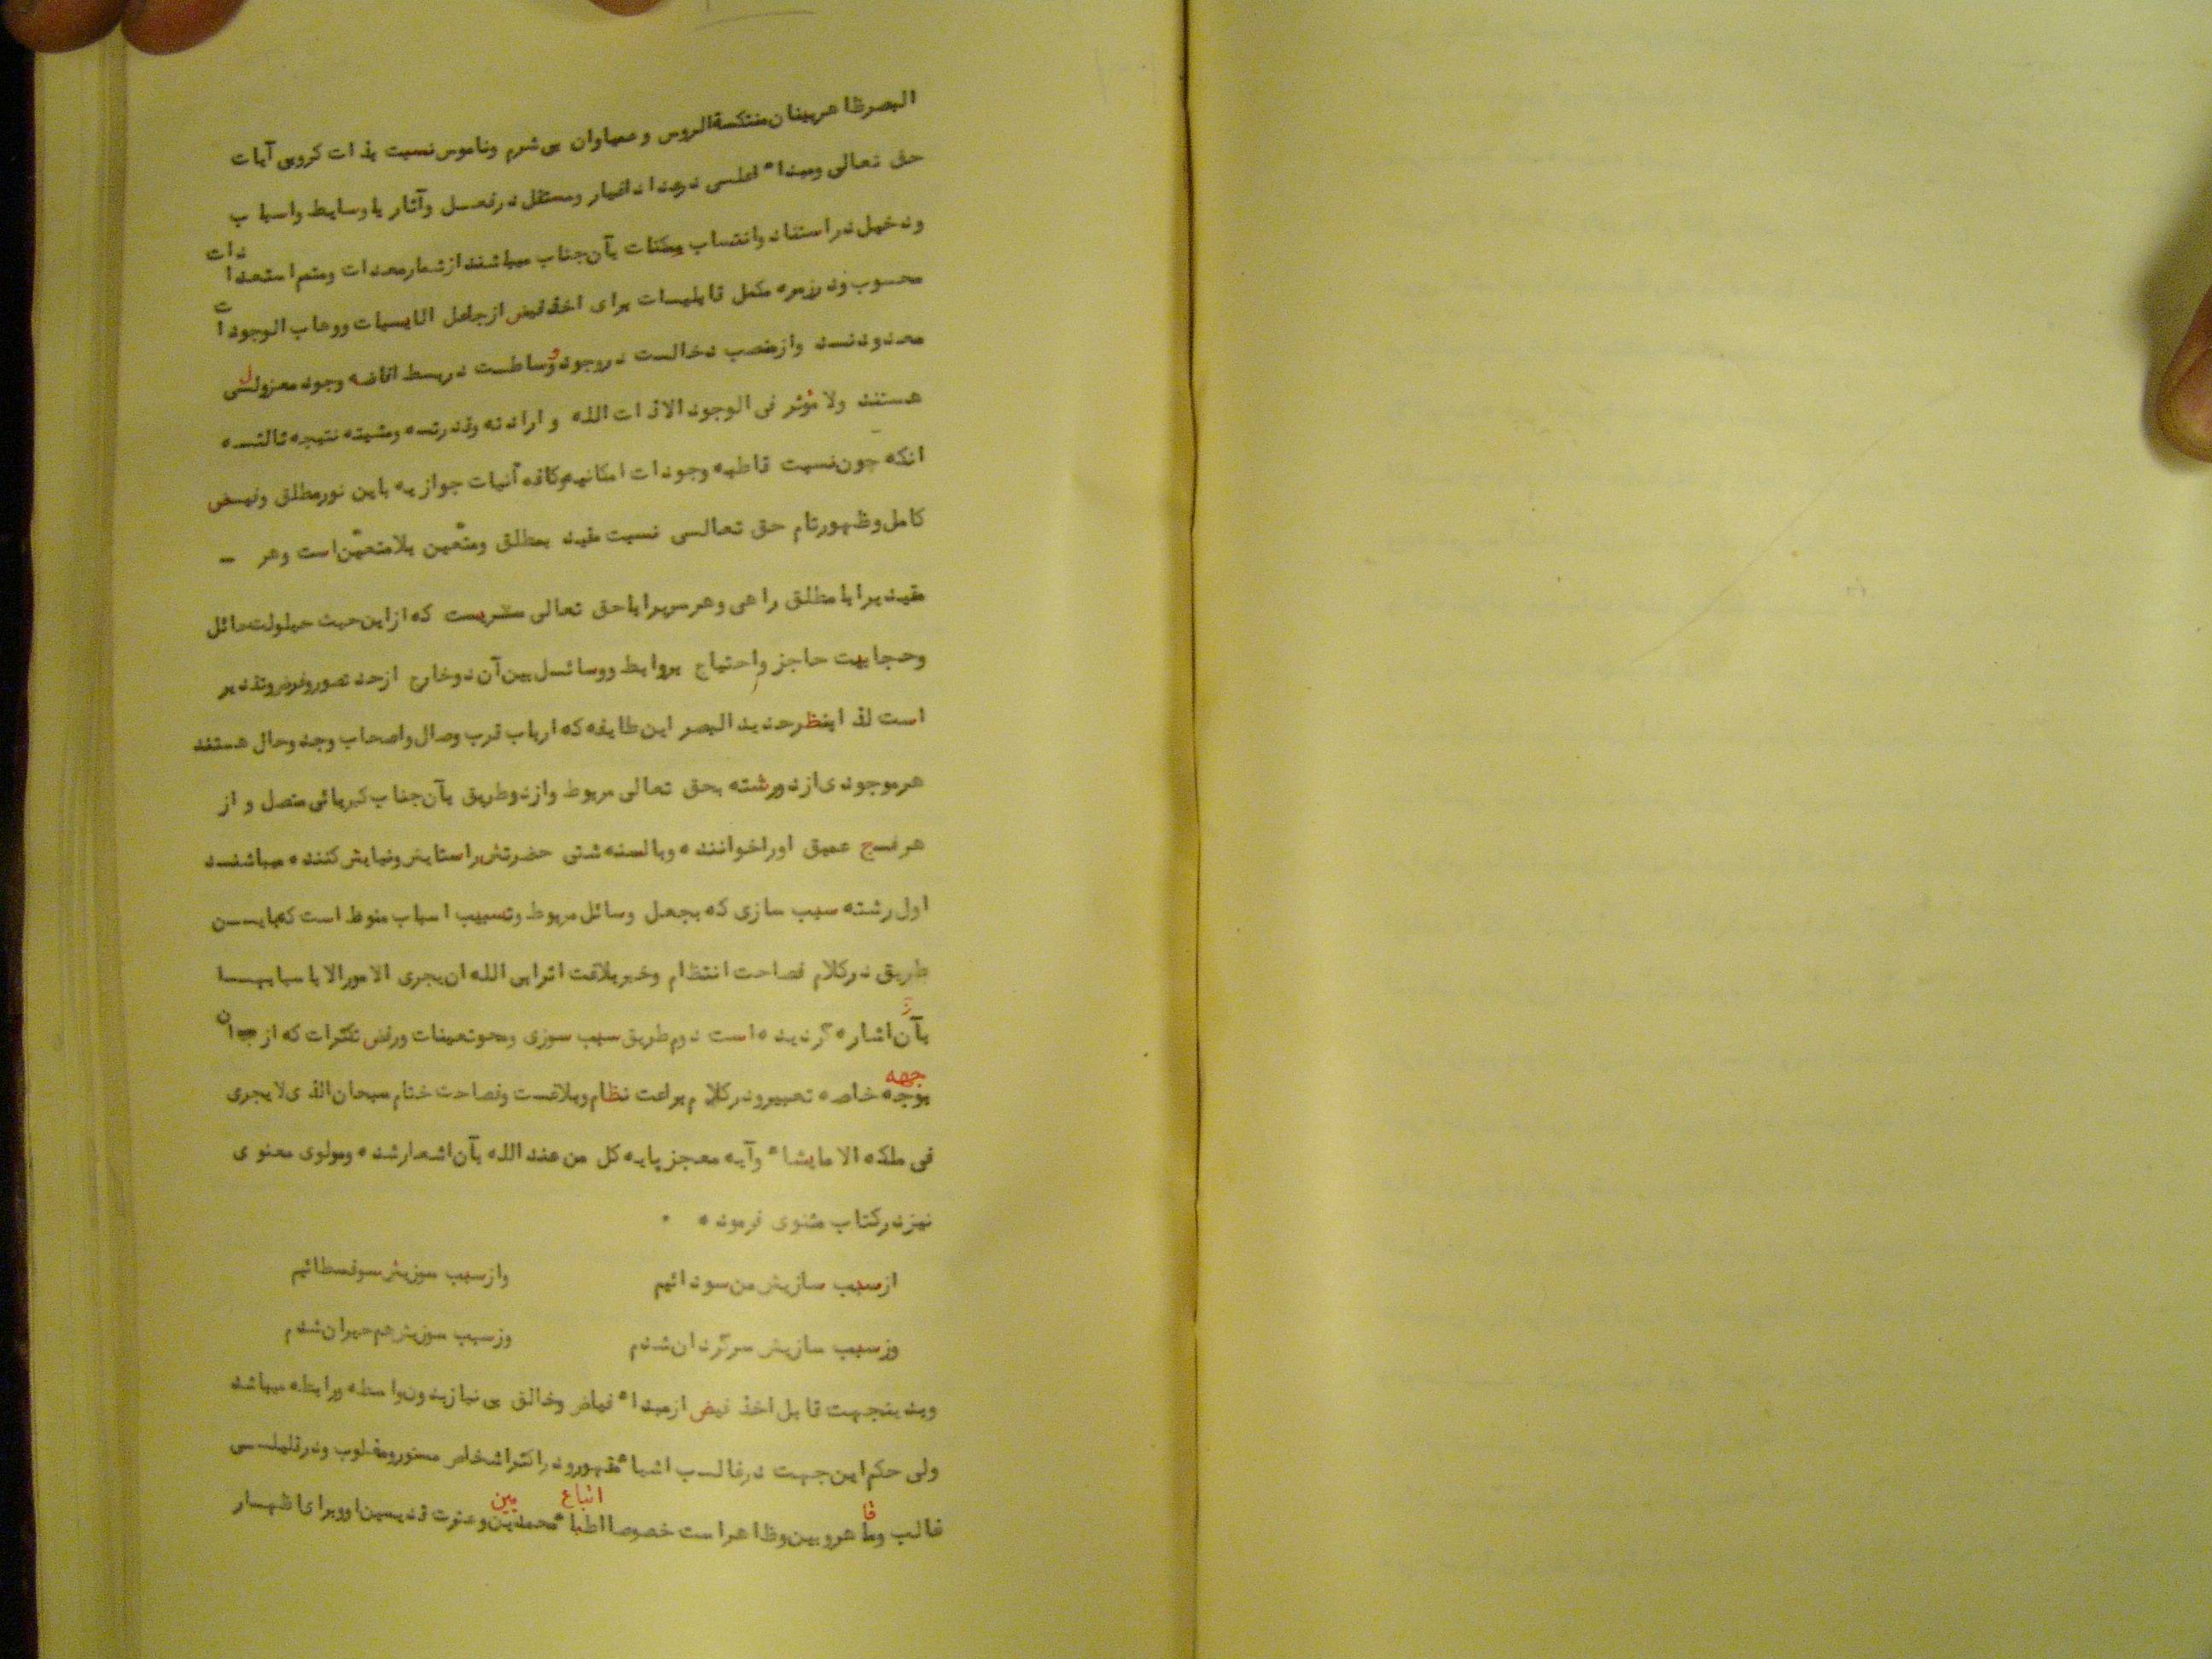 البصر ظاهربینان منتکسة الروس و عمیاوان بی شرم وناموس نسبت بذات کروبی آیات
حق تعالی ومبداء اعلسی در عداد اغیار ومستقل درفعسل وآثار یا وسایط واسباب
ودخیل در استناد وانتساب ممکنات بآن جناب میباشند از شمار معدات ومتمم استعدادات
محسوب ودر زمره مکمل قابلیسات برای اخذ فیض از جاعل الایسیات ووهاب الوجودات
معدودنسد وازمنصب دخالست در وجود ووساطست دربسط افاضه وجود معزولسی
هستند ولا مؤثر فی الوجود الا ذات الله و ارادته وقدرتسه ومشیته نتیجه ثالثسه
انکه چون نسبت قاطبه وجودات امکانیه وکافه انیات جوازیه باین نور مطلق وفیسض
کامل وظهور تام حق تعالسی نسبت مقید بمطلق ومتعین بلا متعین است وهر –
مقیدیرا با مطلق راهی وهر سریرا باحق تعالی سریست که از این حیث حیلولت حائل
وحجابیت حاجز واحتیاج بروابط ووسائسل بین آن دو خارج ازحد تصور وفرض وتقدیر
است لذا بنظر حدید البصر این طایفه که ارباب قرب وصال واصحاب وجد وحال هستند
هر موجودی از دو رشته بحق تعالی مربوط واز دو طریق بآن جناب کبریائی متصل و از
هر فسج عمیق اورا خواننده وبالسنه شتی حضرتش را ستایش ونیایش کننده میباشنسد
اول رشته سبب سازی که بجعل وسائل مربوط وتسبیب اسباب منوط است که باپسسن
طریق در کلام فصاحت انتظام وخبر بلاغت اثر ابی الله ان یجری الامور الا باسبابهسسا
بآن اشاره گردیده است دوم طریق سبب سوزی ومحو تعینات ورفض تکثرات که از آن
بوجهه خاصه تعبیر ودر کلام براعت نظام وبلاغست وفصاحت ختام سبحان الذی لا یجری
فی ملکه الا مایشاء وآیه معجز پایه کل من عند الله بآن اشعار شده ومولوی معنوی
نیز در کتاب مثنوی فرموده •
از سبب سازیش من سودائیم وازسبب سوزیش سوفسطائیم
وز سبب سازیش سرگردان شدم وزسبب سوزیش هم حیران شدم
وبدینجهت قابل اخذ فیض از مبداء فیاض وخالق بی نیاز بدون واسطه ورابطه میباشد
ولی حکم این جهت در غالسب اشیاء مقهور ودر اکثر اشخاص مستور ومغلوب ودر قلیلسسی
غالب وقاهر وبین وظاهر است خصوصا اتباع محمدیین وعترت قدیسین او وبرای اظهسار